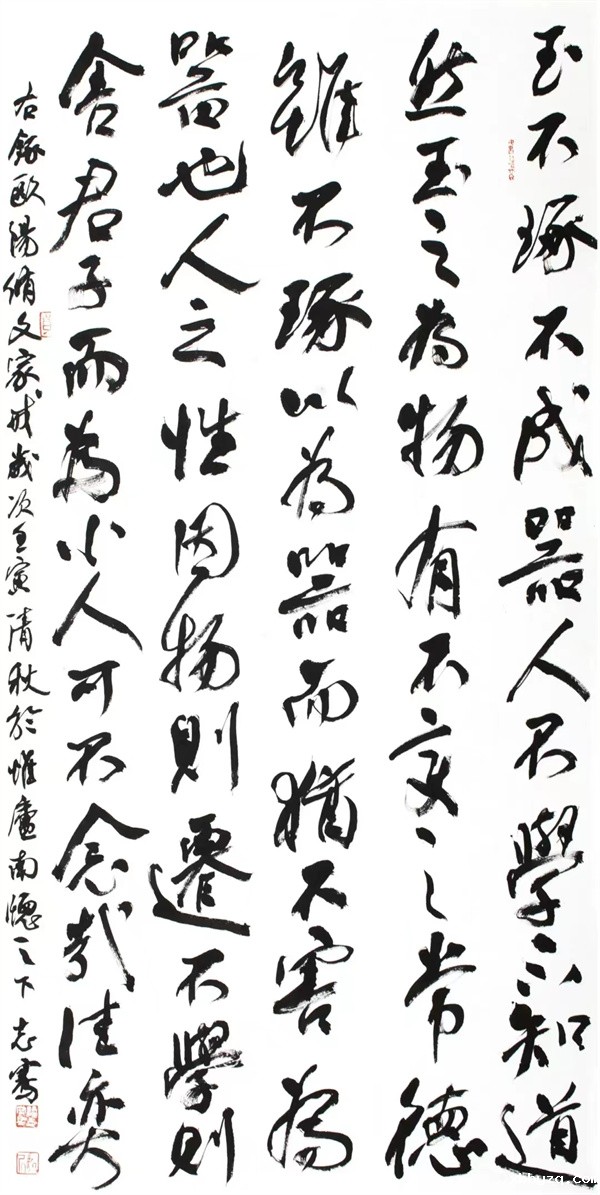 玉不琢不成器人不學不知道
然玉之為物有不變之常德
雖不琢以為器而猶不害為
器也人之性因物則遷不學則
舍君子而為小人可不念哉佳奕
右錄歐陽脩文家戒歲次壬寅清秋於惟廬南牕之下志書